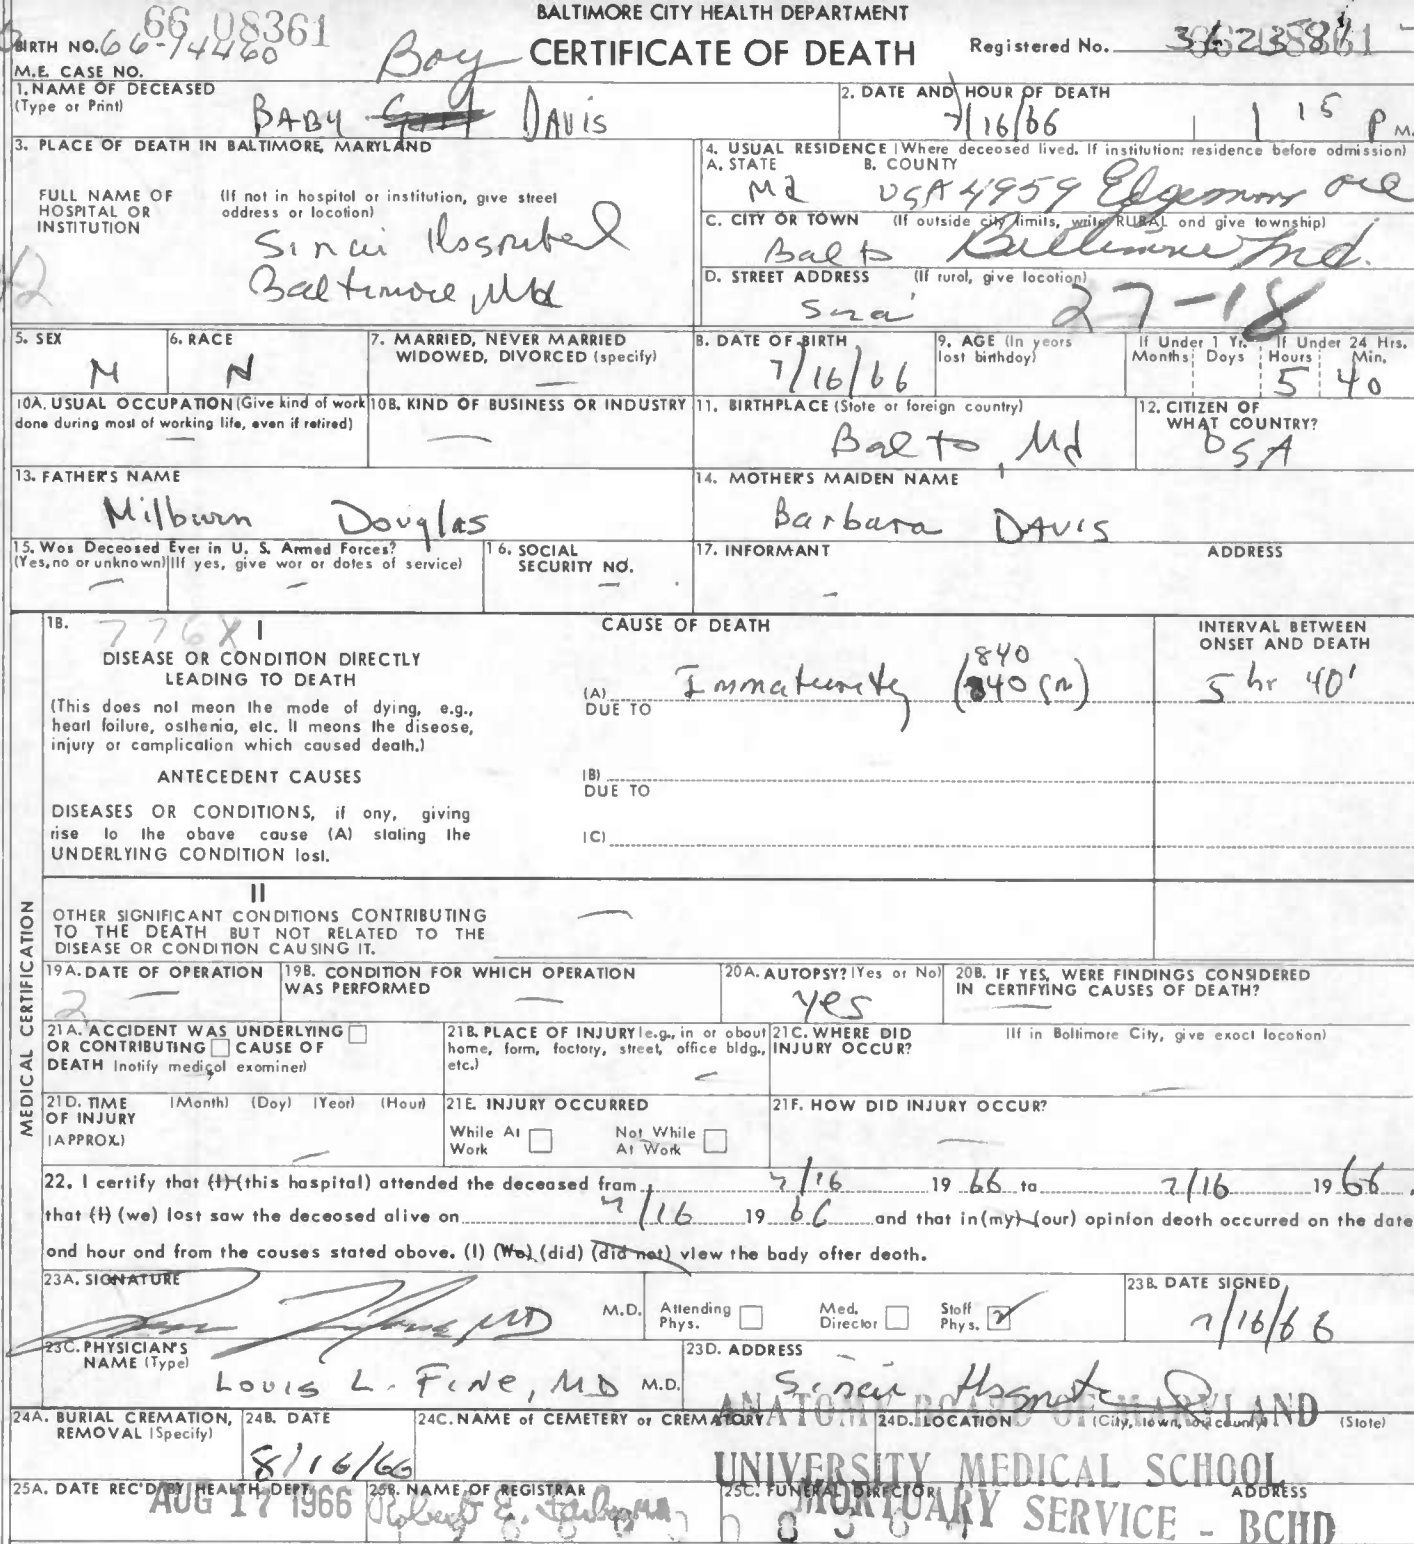 BALTIMORE CITY HEALTH DEPARTMENT
66 08361
BIRTH NO. 66-14460
Boy CERTIFICATE OF DEATH
Registered No.
M.E. CASE NO.
1. NAME OF DECEASED
(Type or Print)
BABY DAVIS
2. DATE AND HOUR OF DEATH
7/16/66 1 15 P M.
3. PLACE OF DEATH IN BALTIMORE, MARYLAND
FULL NAME OF HOSPITAL OR INSTITUTION
(If not in hospital or institution, give street address or location)
Sinai Hospital
Baltimore, Md
4. USUAL RESIDENCE (Where deceased lived. If institution: residence before admission)
A. STATE B. COUNTY
Md USA 4959 Edgemore Ave
C. CITY OR TOWN (If outside city limits, write RURAL and give township)
Balto Baltimore Md.
D. STREET ADDRESS (If rural, give location)
Sinai 27-18
5. SEX
M
6. RACE
N
7. MARRIED, NEVER MARRIED WIDOWED, DIVORCED (specify)
—
8. DATE OF BIRTH
7/16/66
9. AGE (In years last birthday)
If Under 1 Yr. Months Days
If Under 24 Hrs. Hours Min.
5 40
10A. USUAL OCCUPATION (Give kind of work done during most of working life, even if retired)
—
10B. KIND OF BUSINESS OR INDUSTRY
—
11. BIRTHPLACE (State or foreign country)
Balto, Md
12. CITIZEN OF WHAT COUNTRY?
USA
13. FATHER'S NAME
Milburn Douglas
14. MOTHER'S MAIDEN NAME
Barbara DAVIS
15. Was Deceased Ever in U. S. Armed Forces?
(Yes, no or unknown) (If yes, give war or dates of service)
— —
16. SOCIAL SECURITY NO.
—
17. INFORMANT ADDRESS
-
MEDICAL CERTIFICATION
18. 776X I
DISEASE OR CONDITION DIRECTLY
LEADING TO DEATH
(This does not mean the mode of dying, e.g.,
heart failure, asthenia, etc. It means the disease,
injury or complication which caused death.)
ANTECEDENT CAUSES
DISEASES OR CONDITIONS, if any, giving
rise to the above cause (A) stating the
UNDERLYING CONDITION last.
CAUSE OF DEATH
840
(A) Immaturity (840 gm)
DUE TO
(B)
DUE TO
(C)
INTERVAL BETWEEN
ONSET AND DEATH
5 hr 40'
II
OTHER SIGNIFICANT CONDITIONS CONTRIBUTING
TO THE DEATH BUT NOT RELATED TO THE
DISEASE OR CONDITION CAUSING IT.
—
19A. DATE OF OPERATION
2 —
19B. CONDITION FOR WHICH OPERATION WAS PERFORMED
—
20A. AUTOPSY? (Yes or No)
yes
20B. IF YES, WERE FINDINGS CONSIDERED IN CERTIFYING CAUSES OF DEATH?
—
21A. ACCIDENT WAS UNDERLYING
OR CONTRIBUTING CAUSE OF
DEATH (notify medical examiner)
21B. PLACE OF INJURY (e.g., in or about
home, farm, factory, street, office bldg.,
etc.)
21C. WHERE DID INJURY OCCUR?
(If in Baltimore City, give exact location)
—
21D. TIME OF INJURY (APPROX.)
(Month) (Day) (Year) (Hour)
—
21E. INJURY OCCURRED
While At Work Not While At Work
21F. HOW DID INJURY OCCUR?
—
22. I certify that (I) (this hospital) attended the deceased from 7/16 19 66 to 7/16 19 66,
that (I) (we) last saw the deceased alive on 7/16 19 66 and that in (my) (our) opinion death occurred on the date
and hour and from the causes stated above. (I) (We) (did) (did not) view the body after death.
23A. SIGNATURE
M.D.
Attending Phys. Med. Director Staff Phys.
23B. DATE SIGNED
7/16/66
23C. PHYSICIAN'S NAME (Type)
LOUIS L. FINE, MD M.D.
23D. ADDRESS
Sinai
ANATOMY BOARD OF MARYLAND
24A. BURIAL CREMATION, REMOVAL (Specify)
24B. DATE
8/16/66
24C. NAME of CEMETERY or CREMATORY
24D. LOCATION (City, town, or county) (State)
UNIVERSITY MEDICAL SCHOOL
25A. DATE REC'D BY HEALTH DEPT.
AUG 17 1966
25B. NAME OF REGISTRAR
Robert E.
25C. FUNERAL DIRECTOR ADDRESS
MORTUARY SERVICE - BCHD